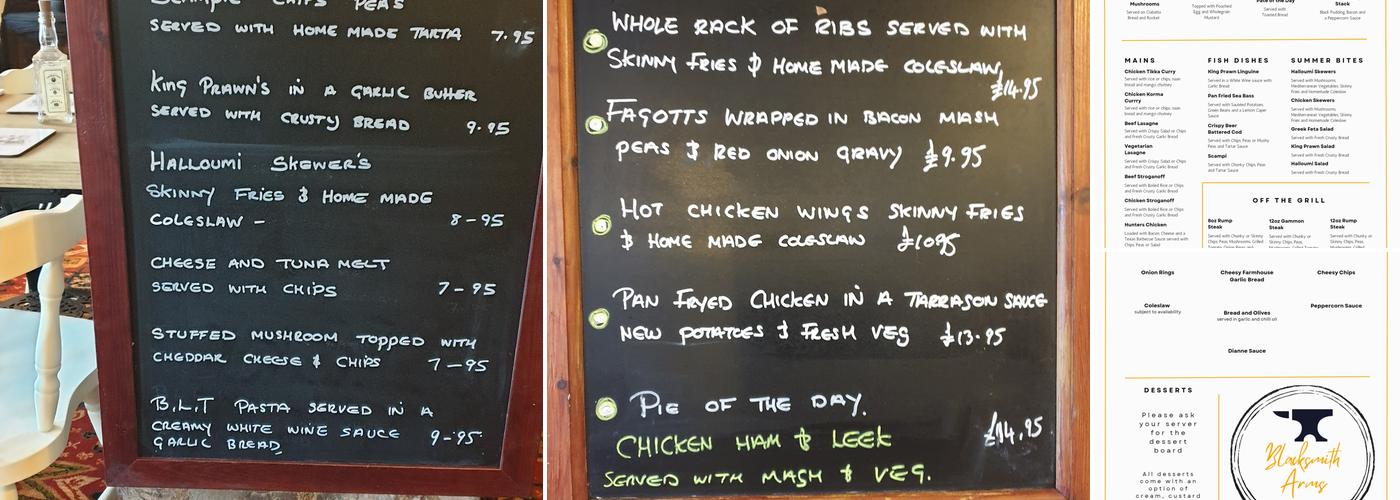 SCAMPIE CHIPS PEAS
SERVED WITH HOME MADE TARTA 7.95
KING PRAWN'S IN A GARLIC BUTTER
SERVED WITH CRUSTY BREAD 9.95
HALLOUMI SKEWER'S
SKINNY FRIES & HOME MADE
COLESLAW - 8-95
CHEESE AND TUNA MELT
SERVED WITH CHIPS 7-95
STUFFED MUSHROOM TOPPED WITH
CHEDDAR CHEESE & CHIPS 7-95
B.L.T PASTA SERVED IN A
CREAMY WHITE WINE SAUCE 9-95
GARLIC BREAD
WHOLE RACK OF RIBS SERVED WITH
SKINNY FRIES & HOME MADE COLESLAW
£14.95
FAGOTTS WRAPPED IN BACON MASH
PEAS & RED ONION GRAVY £9.95
HOT CHICKEN WINGS SKINNY FRIES
& HOME MADE COLESLAW £10.95
PAN FRYED CHICKEN IN A TARRASON SAUCE
NEW POTATOES & FRESH VEG £13.95
PIE OF THE DAY.
CHICKEN HAM & LEEK £14.95
SERVED WITH MASH & VEG.
Mushrooms
Served on Ciabatta
Bread and Rocket
Topped with Poached
Egg and Wholegrain
Mustard
Pate of the Day
Served with
Toasted Bread
Stack
Black Pudding, Bacon and
a Peppercorn Sauce
MAINS
Chicken Tikka Curry
Served with rice or chips, naan
bread and mango chutney
Chicken Korma
Curry
Served with rice or chips, naan
bread and mango chutney
Beef Lasagne
Served with Crispy Salad or Chips
and Fresh Crusty Garlic Bread
Vegetarian
Lasagne
Served with Crispy Salad or Chips
and Fresh Crusty Garlic Bread
Beef Stroganoff
Served with Boiled Rice or Chips
and Fresh Crusty Garlic Bread
Chicken Stroganoff
Served with Boiled Rice or Chips
and Fresh Crusty Garlic Bread
Hunters Chicken
Loaded with Bacon, Cheese and a
Texan Barbecue Sauce served with
Chips, Peas or Salad
FISH DISHES
King Prawn Linguine
Served in a White Wine sauce with
Garlic Bread
Pan Fried Sea Bass
Served with Sautéed Potatoes,
Green Beans and a Lemon Caper
Sauce
Crispy Beer
Battered Cod
Served with Chips, Peas or Mushy
Peas and Tartar Sauce
Scampi
Served with Chunky Chips, Peas
and Tartar Sauce
SUMMER BITES
Halloumi Skewers
Served with Mushrooms,
Mediterranean Vegetables, Skinny
Fries and Homemade Coleslaw
Chicken Skewers
Served with Mushrooms,
Mediterranean Vegetables, Skinny
Fries and Homemade Coleslaw
Greek Feta Salad
Served with Fresh Crusty Bread
King Prawn Salad
Served with Fresh Crusty Bread
Halloumi Salad
Served with Fresh Crusty Bread
OFF THE GRILL
8oz Rump
Steak
Served with Chunky or Skinny
Chips, Peas, Mushrooms, Grilled
12oz Gammon
Steak
Served with Chunky or
Skinny Chips, Peas,
12oz Rump
Steak
Served with Chunky or
Skinny Chips, Peas,
Onion Rings
Cheesy Farmhouse
Garlic Bread
Cheesy Chips
Coleslaw
subject to availability
Bread and Olives
served in garlic and chilli oil
Peppercorn Sauce
Dianne Sauce
DESSERTS
Please ask
your server
for the
dessert
board
All desserts
come with an
option of
cream, custard
Blacksmith
Arms